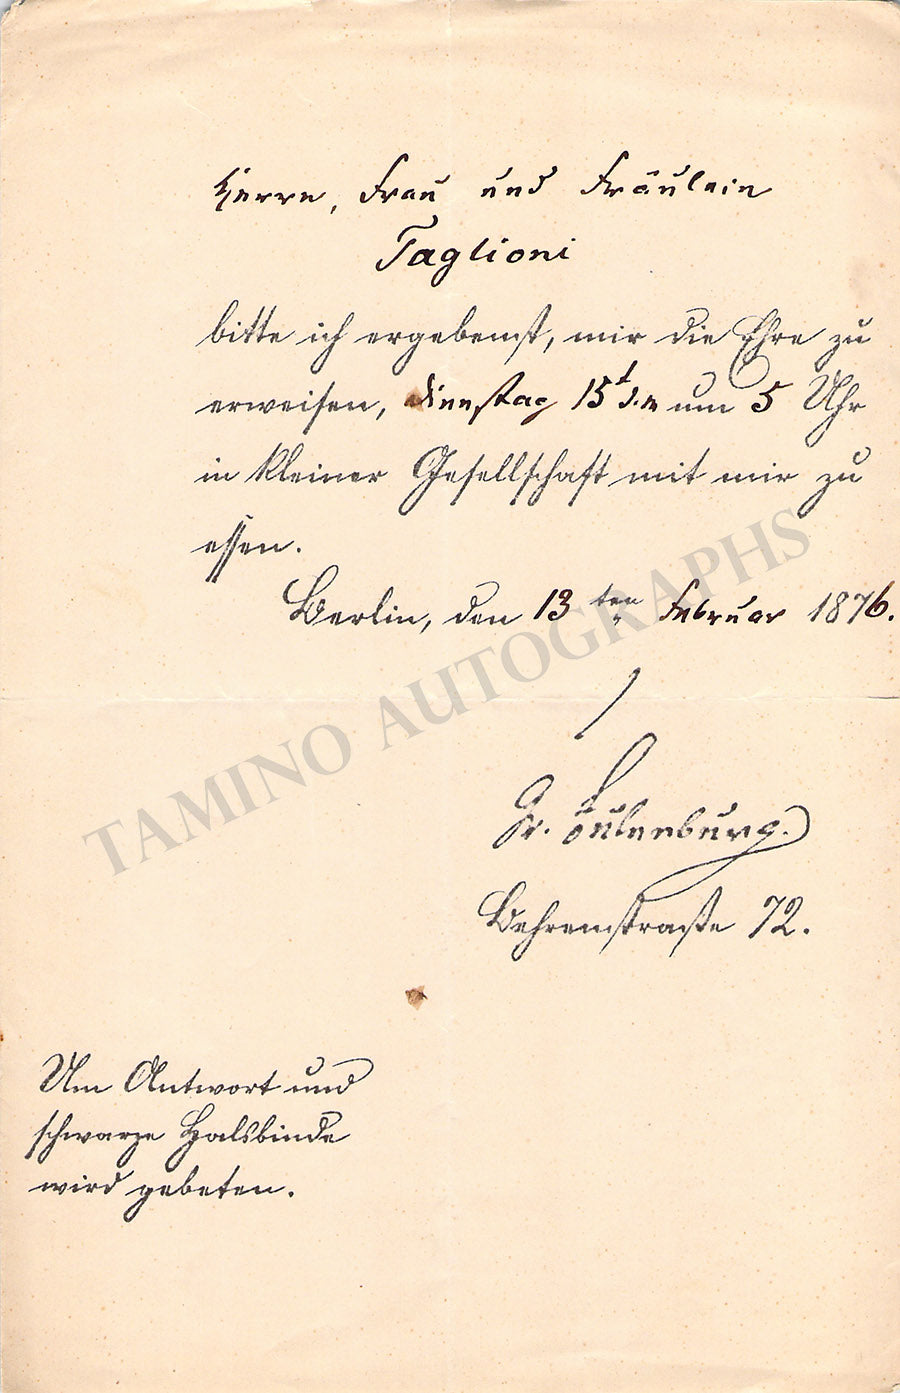 Herrn, Frau und Fräulein
Taglioni
bitte ich ergebenst, mir die Ehre zu
erweisen, Dienstag 15t d. M um 5 Uhr
in kleiner Gesellschaft mit mir zu
essen.
Berlin, den 13ten Februar 1876.
Gr. Eulenburg.
Behrenstraße 72.
Um Antwort und
schwarze Halsbinde
wird gebeten.
TAMINO AUTOGRAPHS